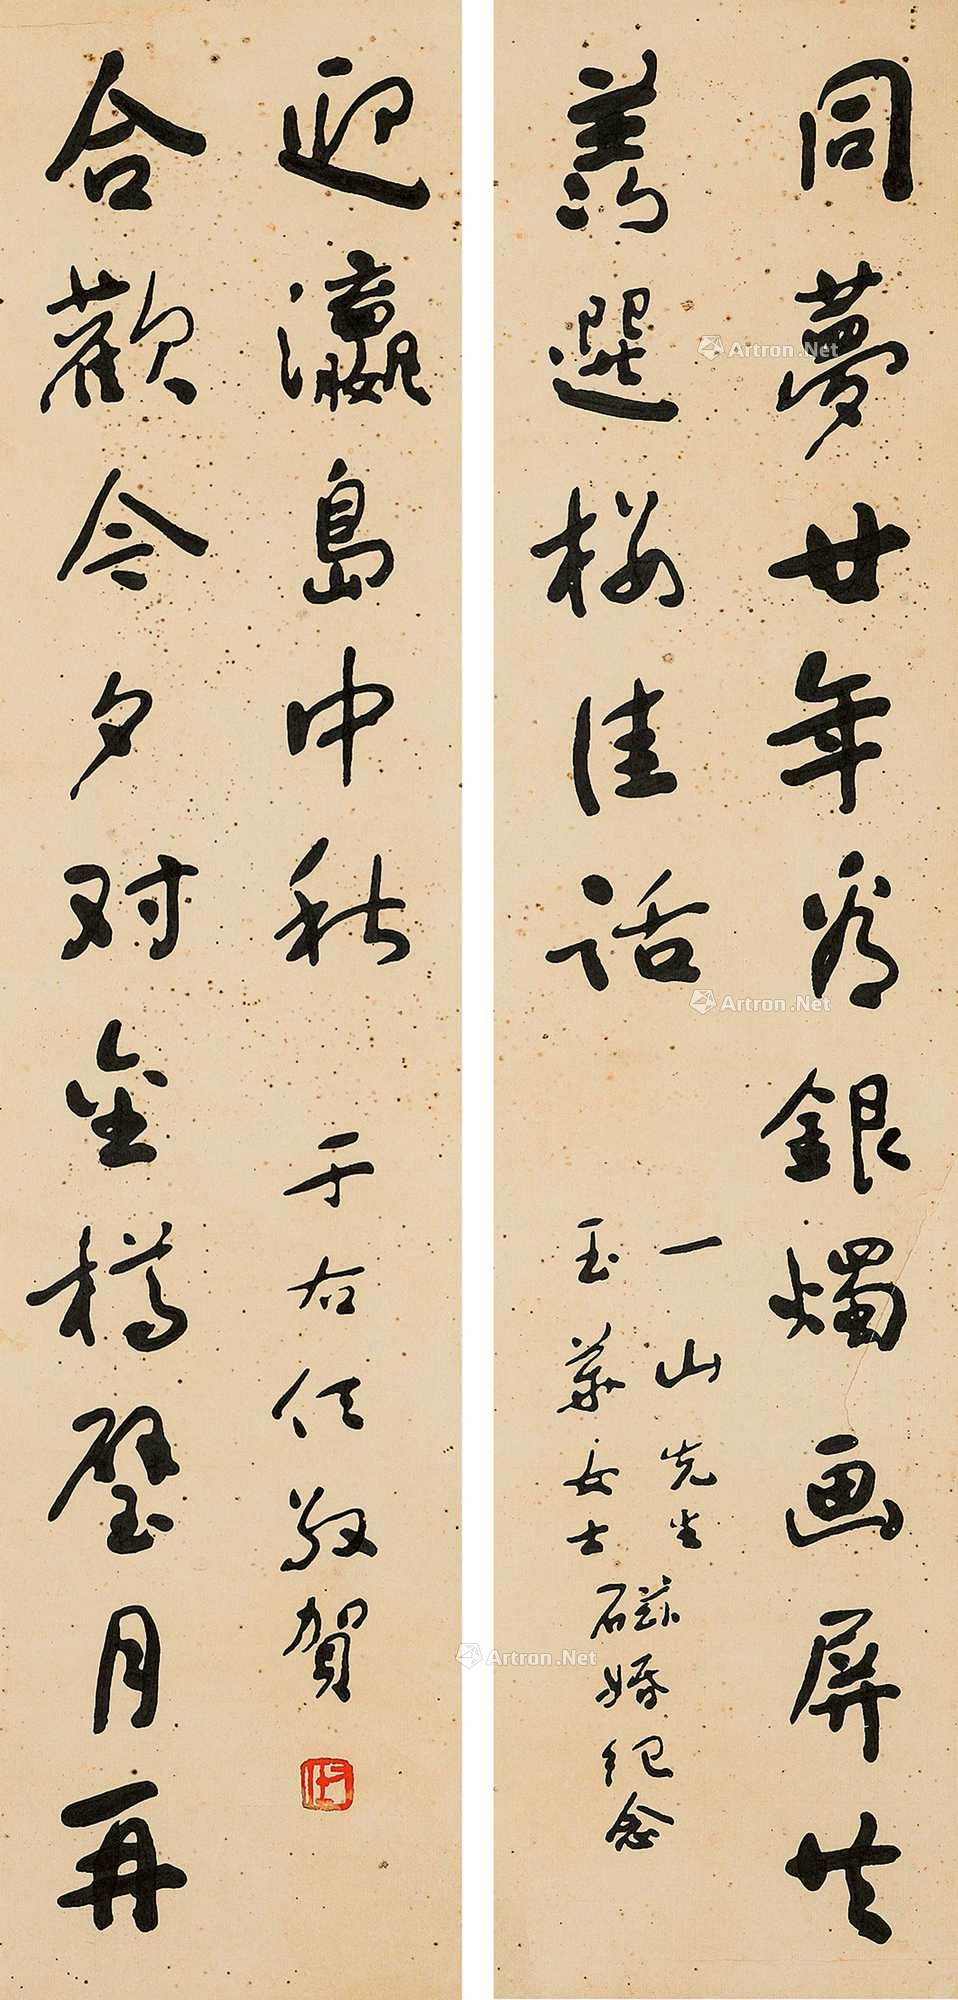 同夢廿年看銀燭画屏共
羨選樓佳話
一山先生
玉華女士
磁婚纪念
合歡今夕对金樽璧月再
迎瀛島中秋
于右任敬賀
右任
Artron.Net
Artron.Net
Artron.Net